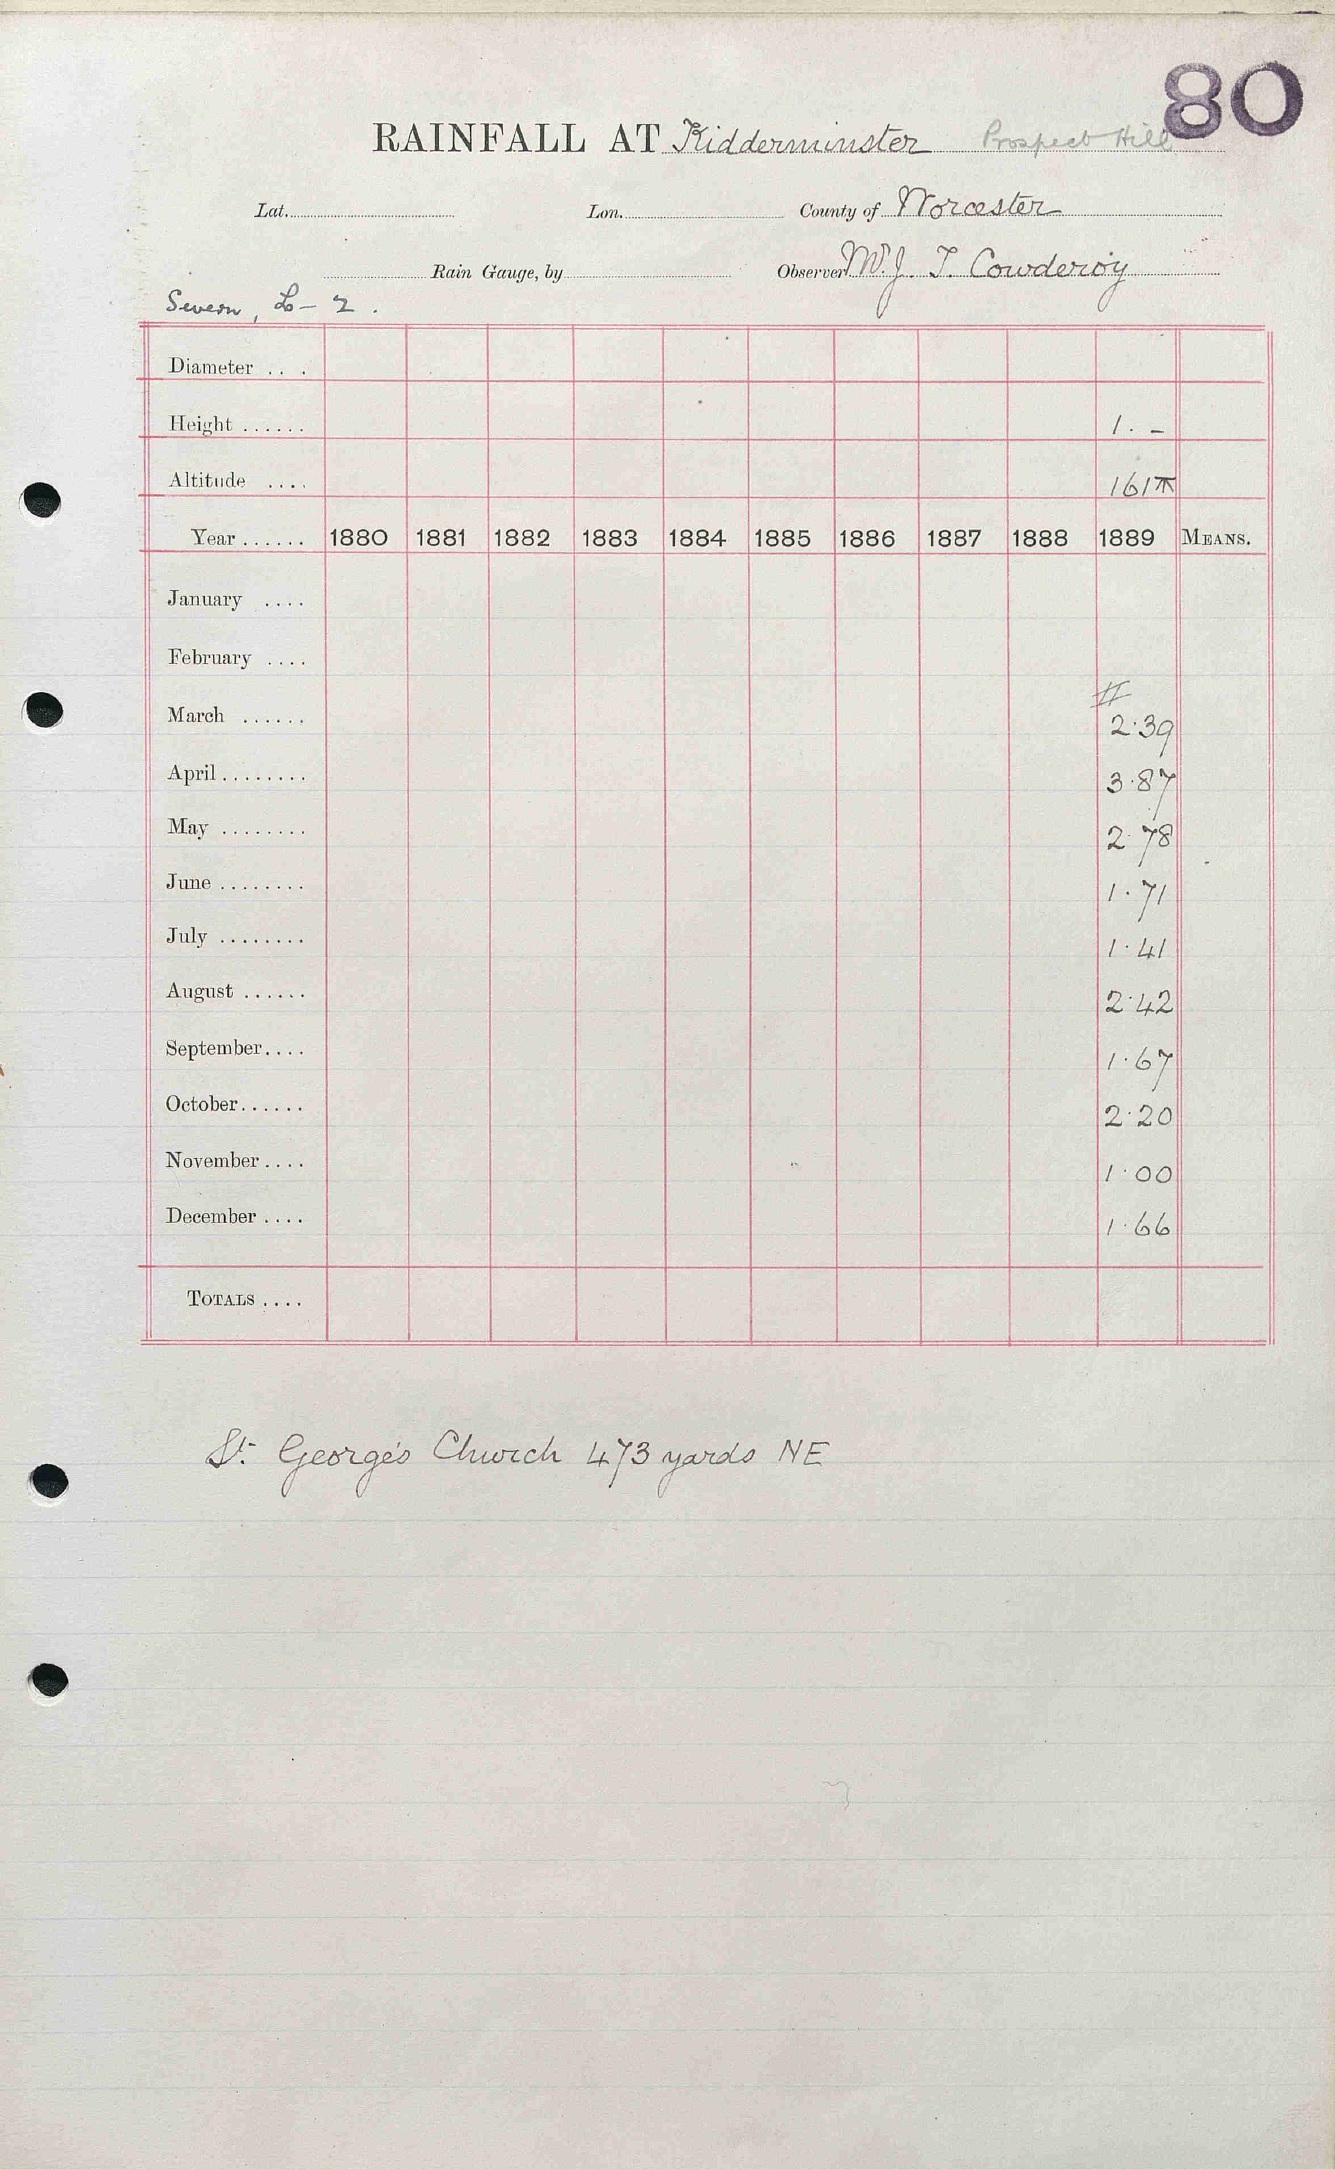 80
RAINFALL AT Kidderminster Prospect Hill
Lat. Lon. County of Worcester
Rain Gauge, by Observer W. J. T. Cowderoy
Severn, L – 2.
Diameter . . .
Height ...... 1. –
Altitude .... 161
Year ...... 1880 1881 1882 1883 1884 1885 1886 1887 1888 1889 MEANS.
January ....
February ....
March ...... 2·39
April ........ 3·87
May ........ 2·78
June ........ 1·71
July ........ 1·41
August ...... 2·42
September.... 1·67
October...... 2·20
November.... 1·00
December.... 1·66
TOTALS ....
St. George's Church 473 yards NE